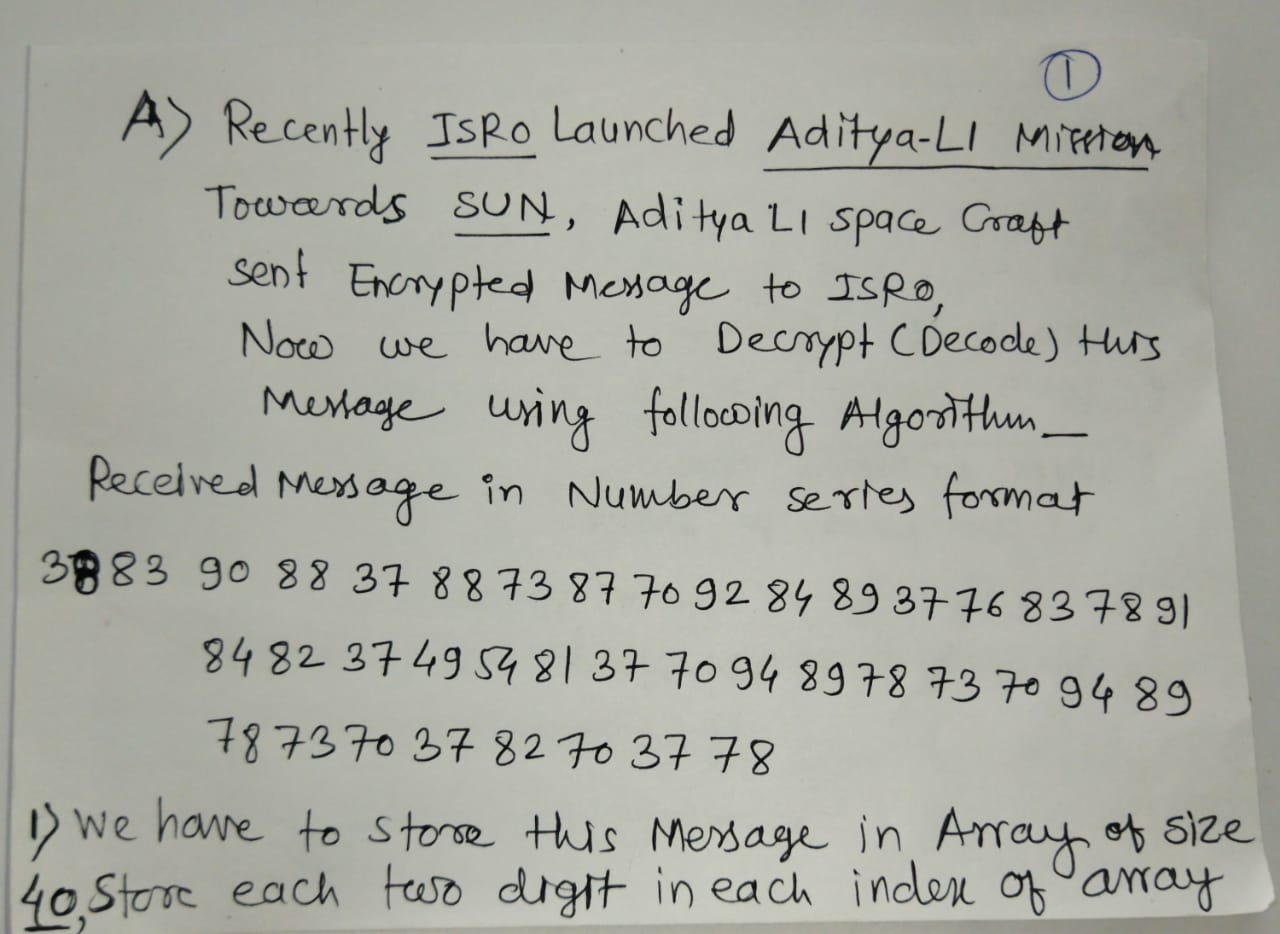 1
A) Recently ISRO Launched Aditya-L1 Mission
Towards SUN, Aditya L1 space Craft
sent Encrypted Message to ISRO,
Now we have to Decrypt (Decode) this
Message using following Algorithm_
Received Message in Number series format
38 83 90 88 37 88 73 87 70 92 84 89 37 76 83 78 91
84 82 37 49 54 81 37 70 94 89 78 73 70 94 89
78 73 70 37 82 70 37 78
1) we have to store this Message in Array of size
40, Store each two digit in each index of array